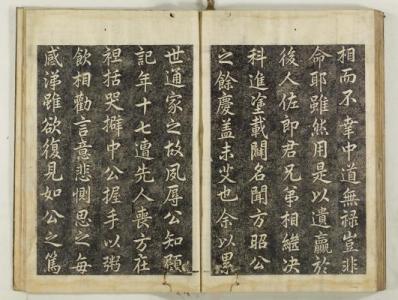 相而不幸中道無祿豈非
命耶雖然用是以遺羸於
後人佐郎君兄弟相繼决
科進塗載闢名聞方昭公
之餘慶盖未艾也余以累
世通家之故夙辱公知顧
記年十七遭先人喪方在
袒括哭擗中公握手以粥
飲相勸言意悲惻思之每
感涕雖欲復見如公之篤